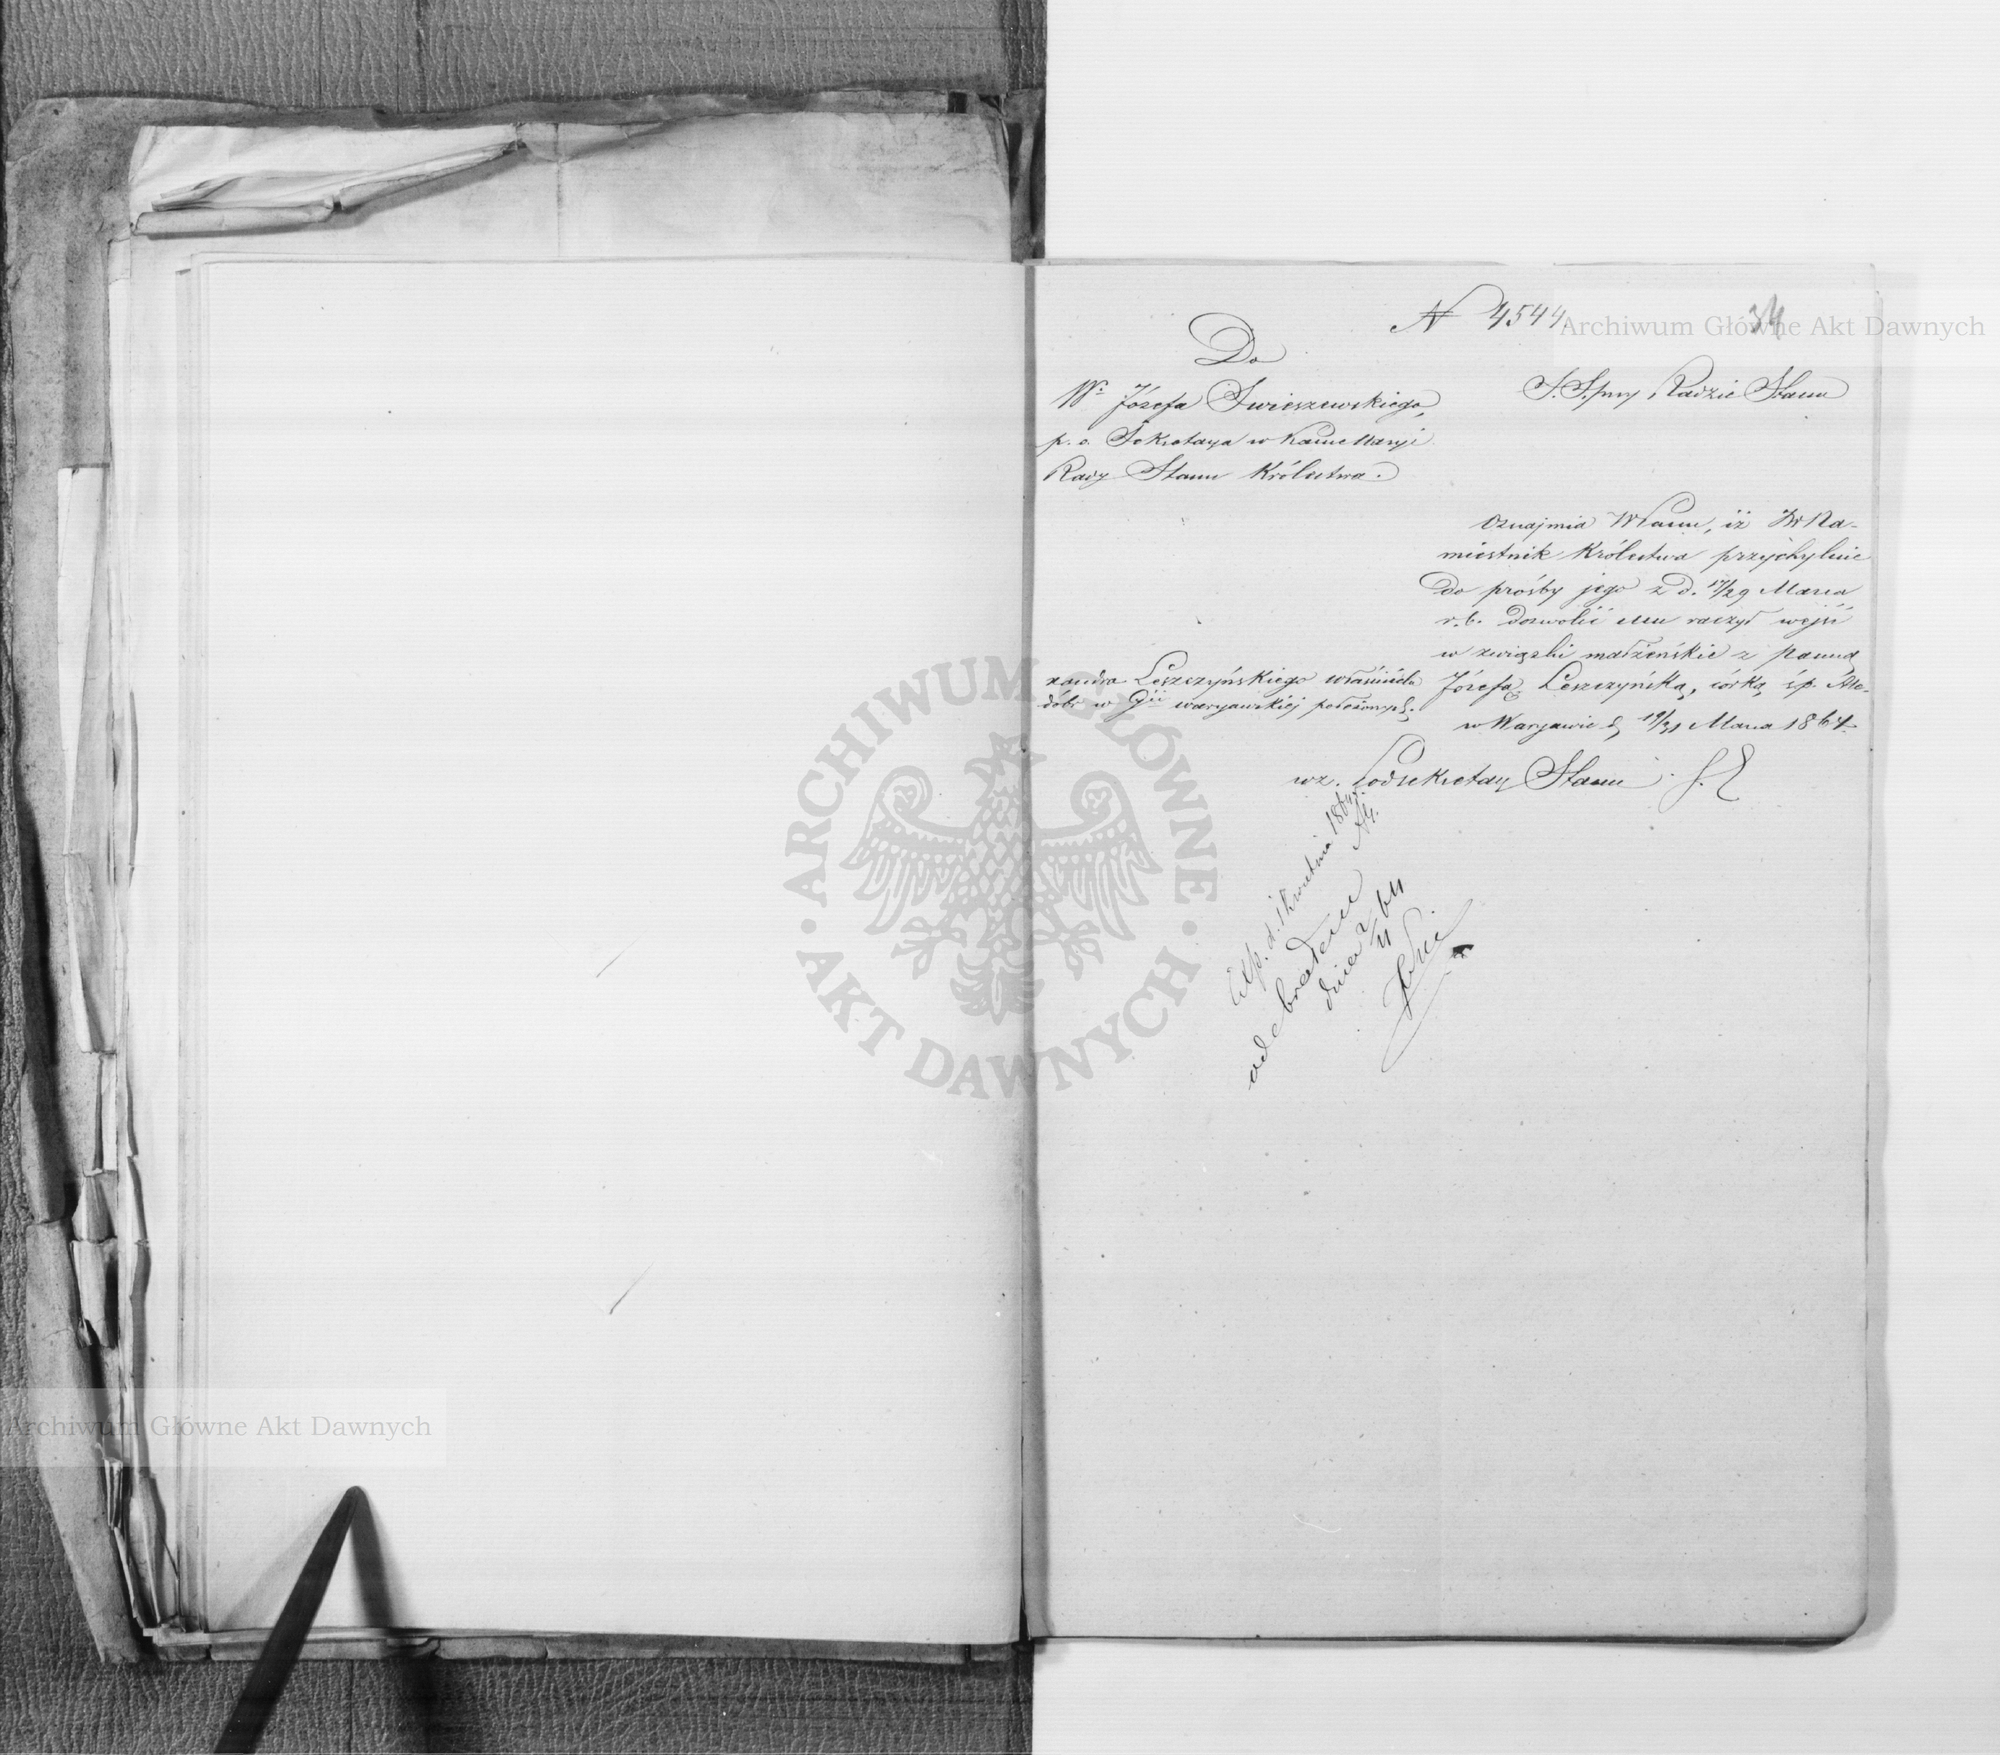 N 4544
34
Do
Wº Józefa Swieszewskiego,
p. o. Sekretarza w Kancellaryi
Rady Stanu Królestwa.
S. S. przy Radzie Stanu
Oznajmia WPanu, iż JW Na-
miestnik Królestwa przychylnie
do prośby jego z d. 17/29 Marca
r. b. dozwolić mu raczył wejść
w związki małżeńskie z panną
Józefą Leszczyńską, córką ś.p. Ale-
xandra Leszczyńskiego właściciela
dóbr w Gii warszawskiéj położonych.
w Warszawie d 19/31 Marca 1864.
wz. Podsekretarz Stanu
Exp. d. 1 Kwietnia 1864
odebrałem
dnia 2/4 64
Archiwum Główne Akt Dawnych
Archiwum Główne Akt Dawnych
· ARCHIWUM GŁÓWNE ·
AKT DAWNYCH